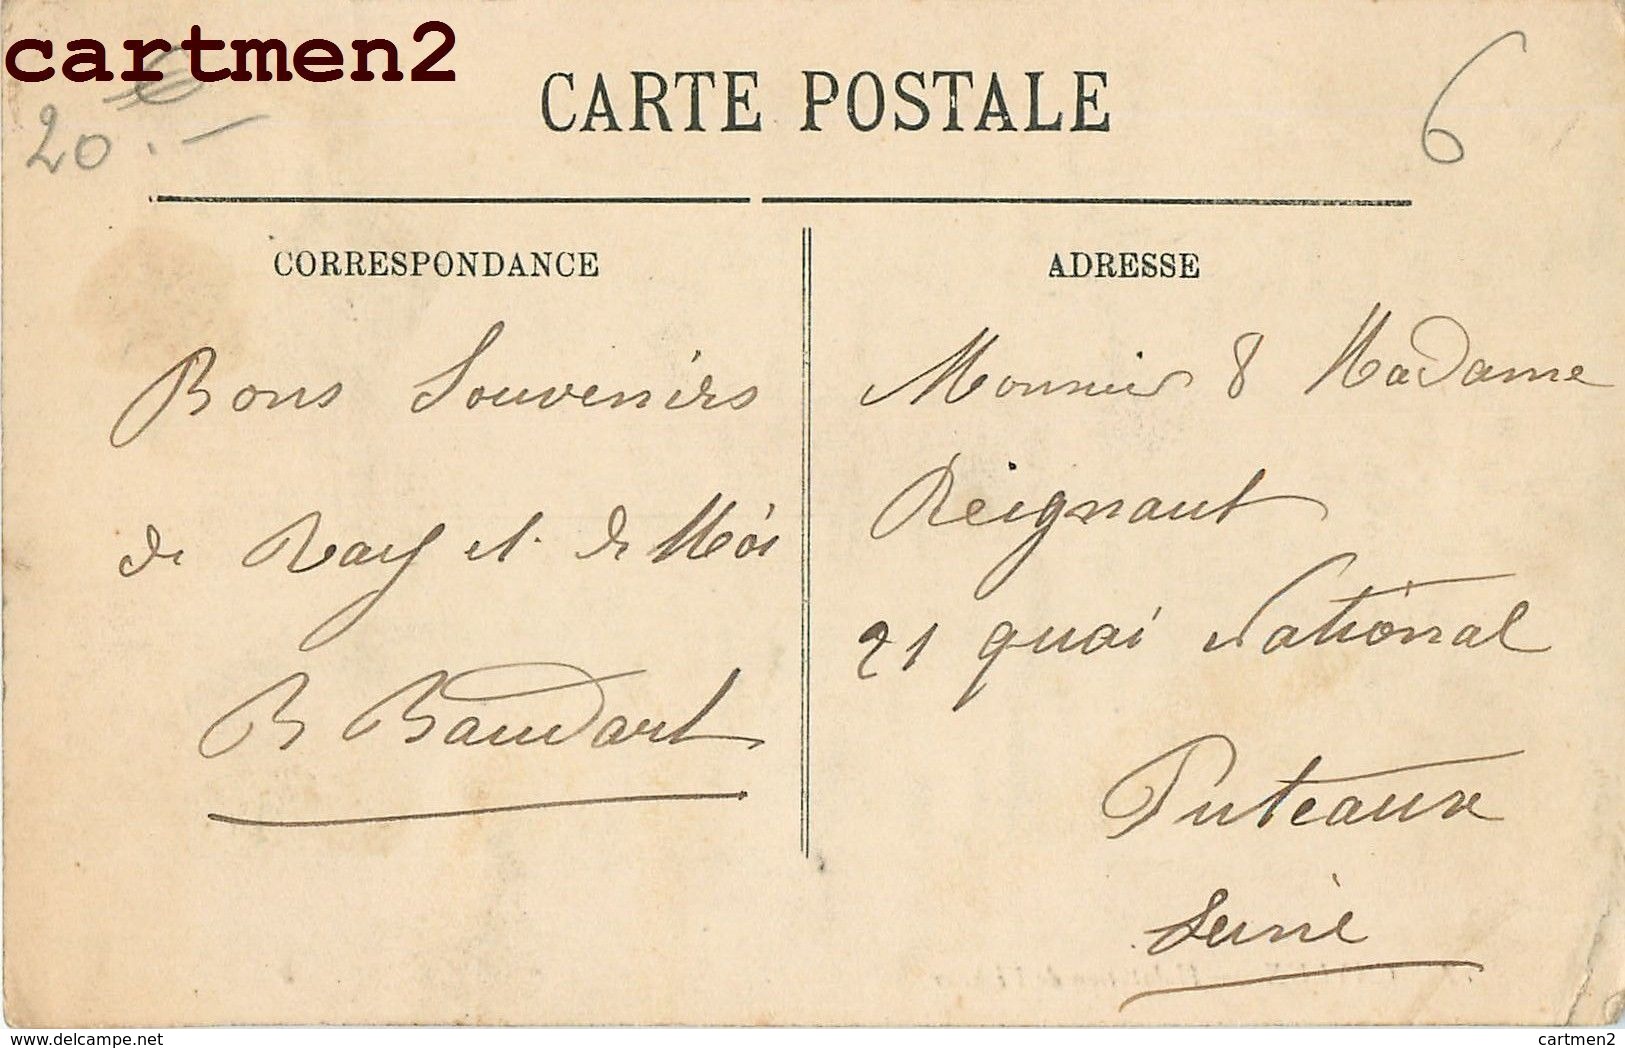 cartmen2
20.-
€
CARTE POSTALE
6
CORRESPONDANCE
Bons Souvenirs
de Ray et de Moi
B Baudart
ADRESSE
Monsieur & Madame
Reignaut
21 quai National
Puteaux
Seine
www.delcampe.net
cartmen2